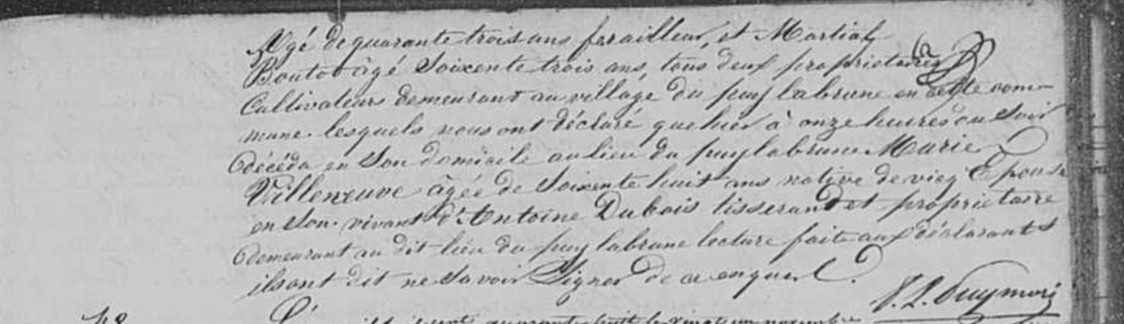 Agé de quarante trois ans ferailleur, et Martial
Boutot âgé Soixente trois ans, tous deux proprietaires
Cultivateurs demeurant au village du puy labrune en cette com-
mune lesquels nous ont déclaré que hier à onze heures du Soir
décéda en Son domicile au lieu du puy labrune Marie
Villeneuve âgée de Soixente huit ans native de vicq Epouse
en Son vivant d'Antoine Dubois tisserand et proprietaire
demeurant au dit lieu du puy labrune lecture faite aux déclarants
ils ont dit ne Savoir Signer de ce enquis
quarante huit le vingt un novembre